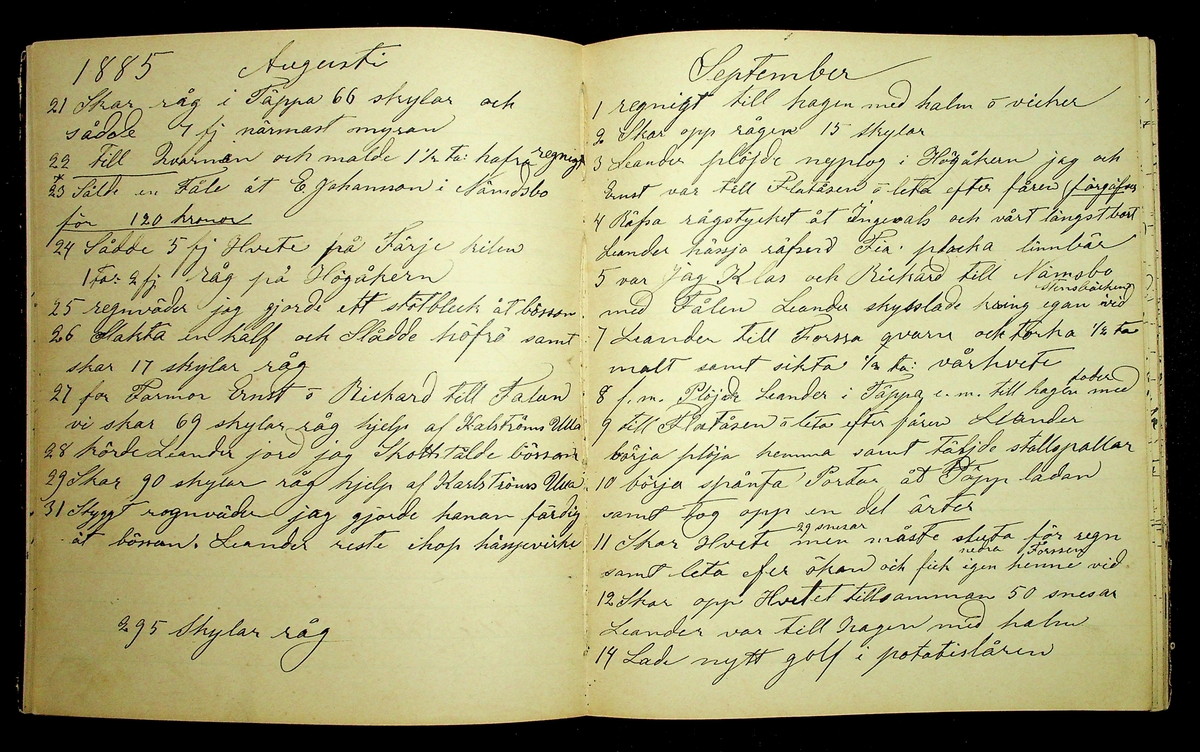 1885 Augusti
21 Skar råg i Täppa 66 skylar och
sådde 7 fj närmast myran
22 till Qvarnen och malde 1 1/2 ta: hafra regnigt
23 Sålde en Fåle åt E. Johansson i Nämdsbo
för 120 kronor
24 Sådde 5 fj Hvete på Färje kilen
1 ta: 2 fj råg på Högåkern
25 regnväder jag gjorde ett stötbleck åt bössan
26 Slakta en kalf och Slådde höfrö samt
skar 17 skylar råg
27 for Farmor Ernst o Rickard till Falun
vi skar 69 skylar råg hjelp af Kalströms Ulla
28 körde Leander jord jag Skottstälde bössan
29 Skar 90 skylar råg hjelp af Karlströms Ulla
31 Styggt rognväder jag gjorde hanan färdig
åt bössan. Leander reste ihop hässjevirke
295 Skylar råg
September
1 regnigt till hagen med halm o vicker
2 Skar opp rågen 15 skylar
3 Leander plöjde nyplog i Högåkern jag och
Ernst var till Flatåsen o leta efter fåren förgäfves
4 Räfsa rågstycket åt Ingevals och vårt längst bort
Leander hässja räfserd Fia plocka linnbär
5 var jag Klas och Rickard till Nämsbo
med Fålen Leander skysslade kring egan vid Stensbäcken
7 Leander till Forssa qvarn och torka 1/2 ta
malt samt sikta 1/2 ta: vårhvete
8 f.m. Plöjde Leander i Täppa e.m. till hagen med
9 till Flatåsen o leta efter fåren Leander
börja plöja hemma samt täljde stallspallar
10 börja spånta Portar åt Täpp ladan
samt tog opp en del ärter
11 Skar Hvete 29 snesar men måste sluta för regn
samt leta efer ökan och fick igen henne vid nedra Forssen
12 Skar opp Hvetet tillsamman 50 snesar
Leander var till hagen med halm
14 Lade nytt golf i potatislåren